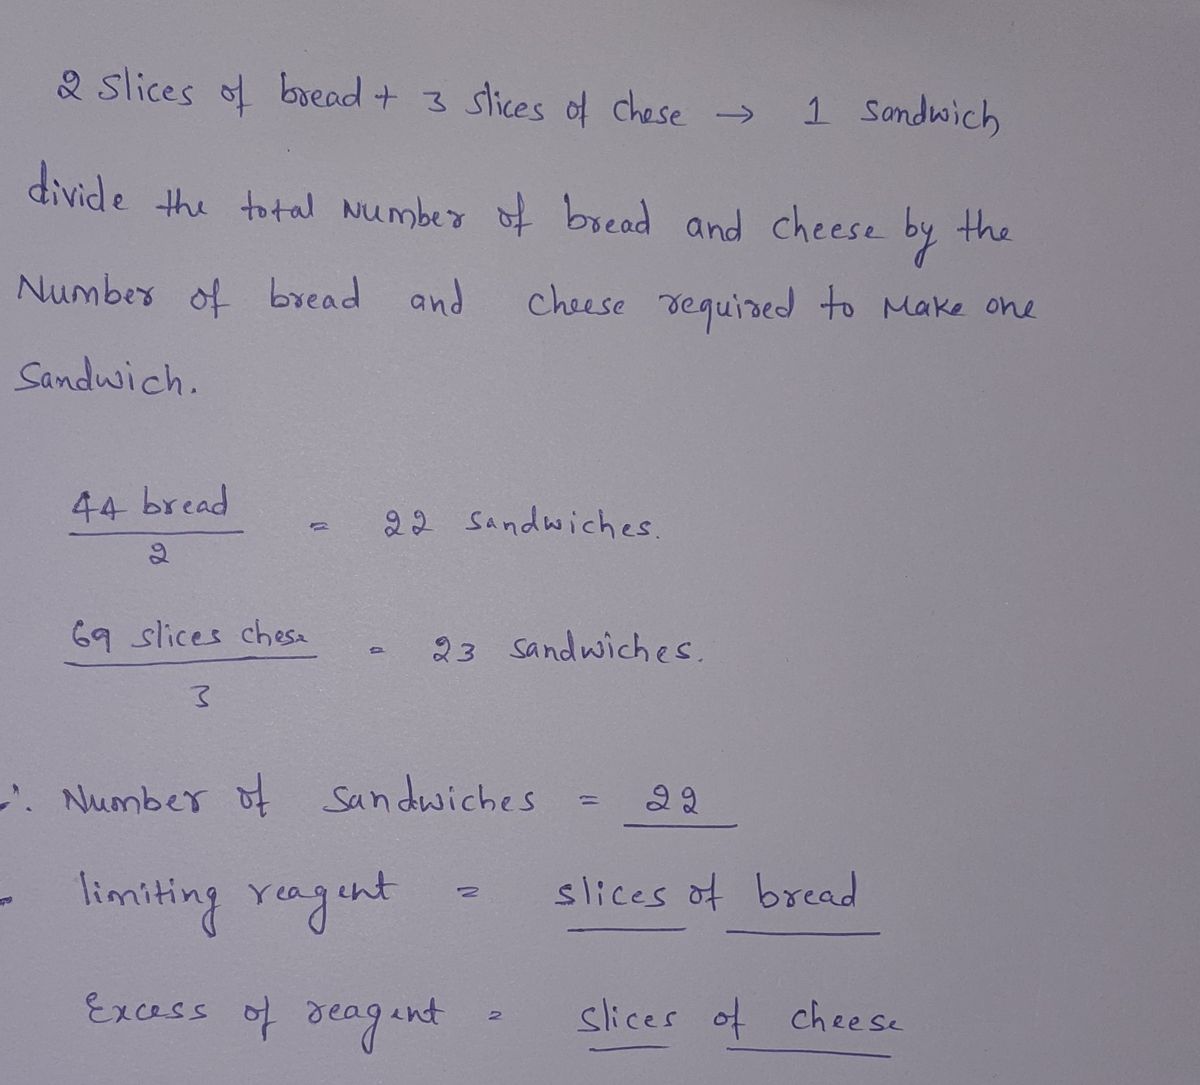 2 slices of bread + 3 slices of chese → 1 sandwich
divide the total Number of bread and cheese by the
Number of bread and cheese required to Make one
Sandwich.
44 bread
2
= 22 sandwiches.
69 slices chese
3
= 23 sandwiches.
∴ Number of Sandwiches = 22
limiting reagent = slices of bread
Excess of reagent = slices of cheese